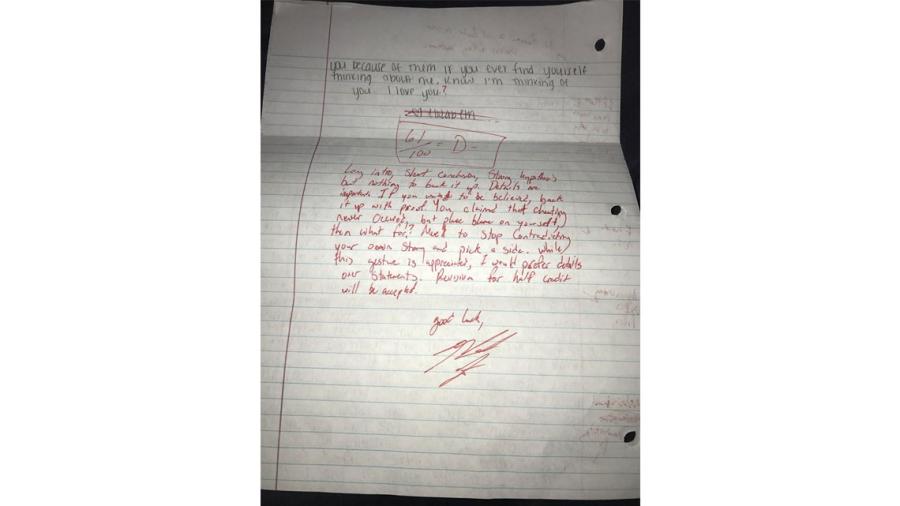 you because of them if you ever find yourself
thinking about me. Know I'm thinking of
you. I love you?
61/100 = D-
Long intro, short conclusion, Strong hypothesis
but nothing to back it up. Details are
important. If you want to be believed, back
it up with proof. You claimed that cheating
never occured, but place blame on yourself,
then what for? Need to stop contradicting
your own story and pick a side. While
this gesture is appreciated, I would prefer details
over statements. Revision for half credit
will be accepted.
good luck,